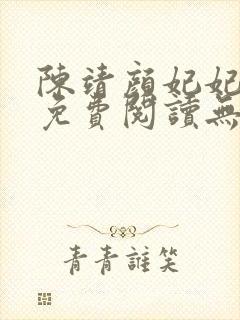 陳靖顏妃妃
免費閱讀無
青青誰笑